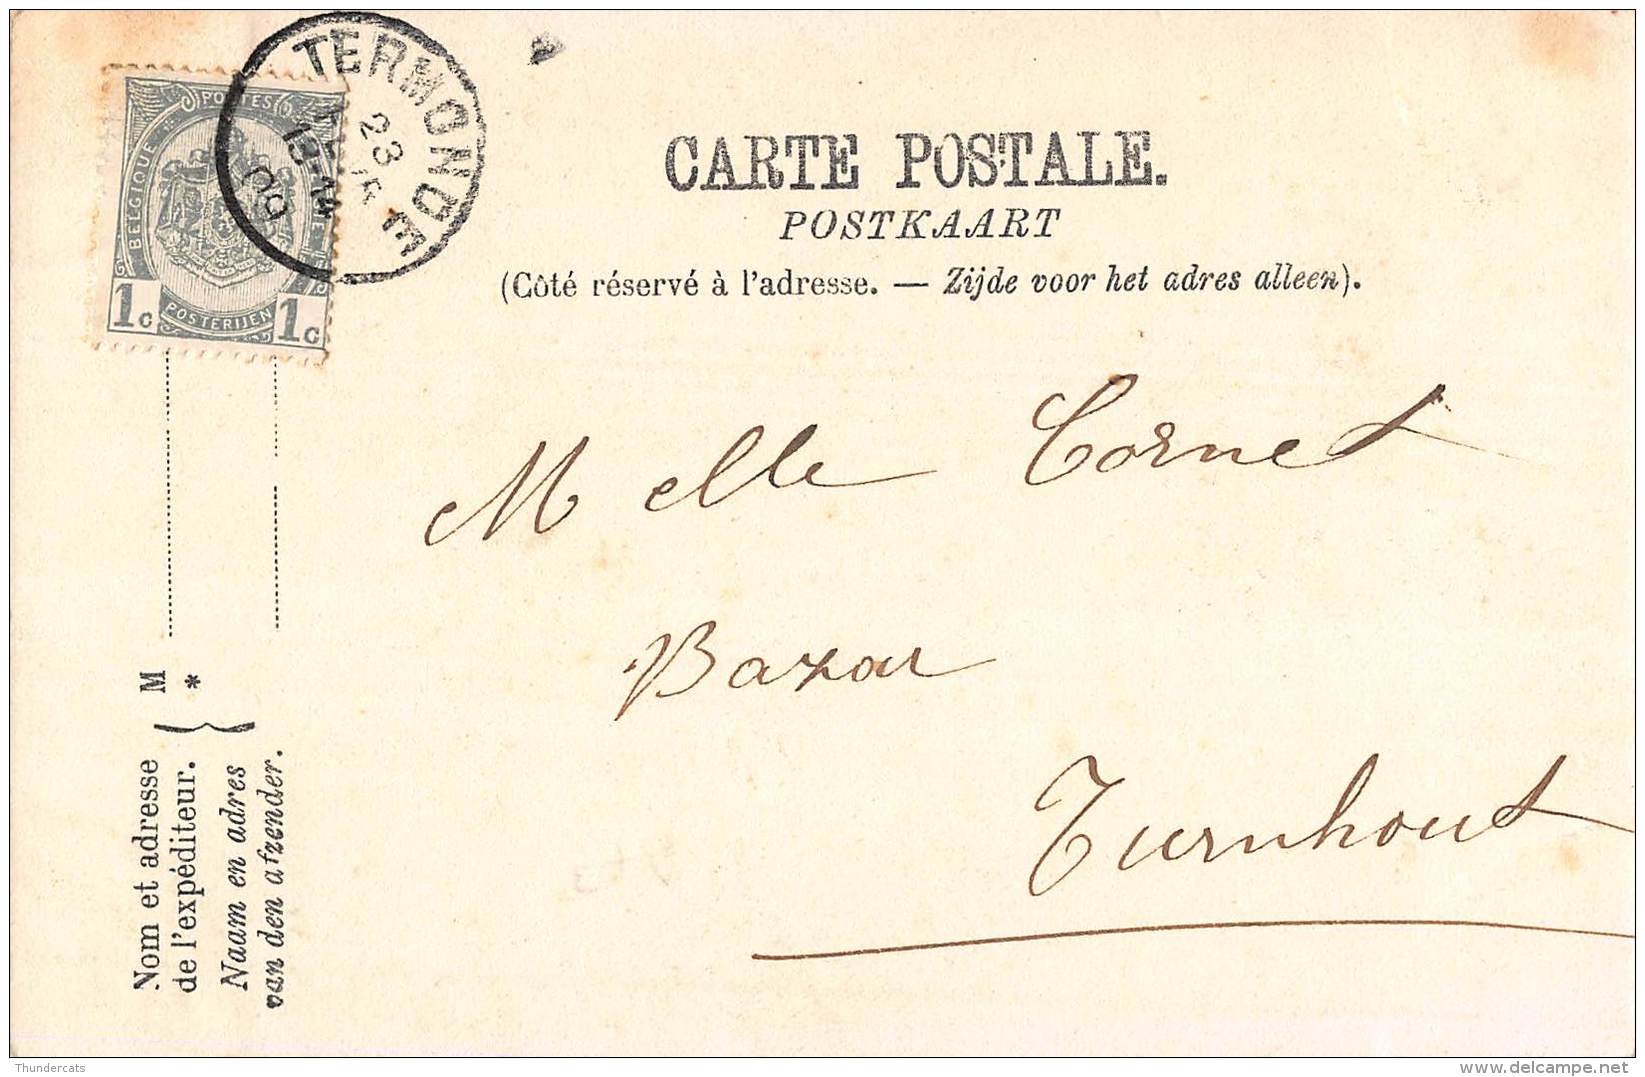 TERMONDE
23
09
POSTES
BELGIQUE
1c
POSTERIJEN
1c
CARTE POSTALE.
POSTKAART
(Côté réservé à l'adresse. — Zijde voor het adres alleen).
Melle Cornet
Bazar
Turnhout
M
*
Nom et adresse
de l'expéditeur.
Naam en adres
van den afzender.
Thundercats
delcampe.net